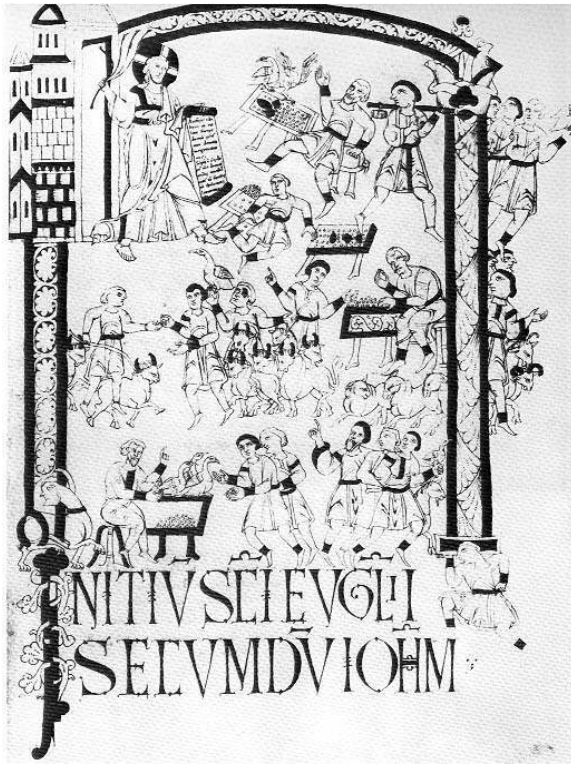 INITIV SCI EVGLII
SECVMDV̄ IOH̄M